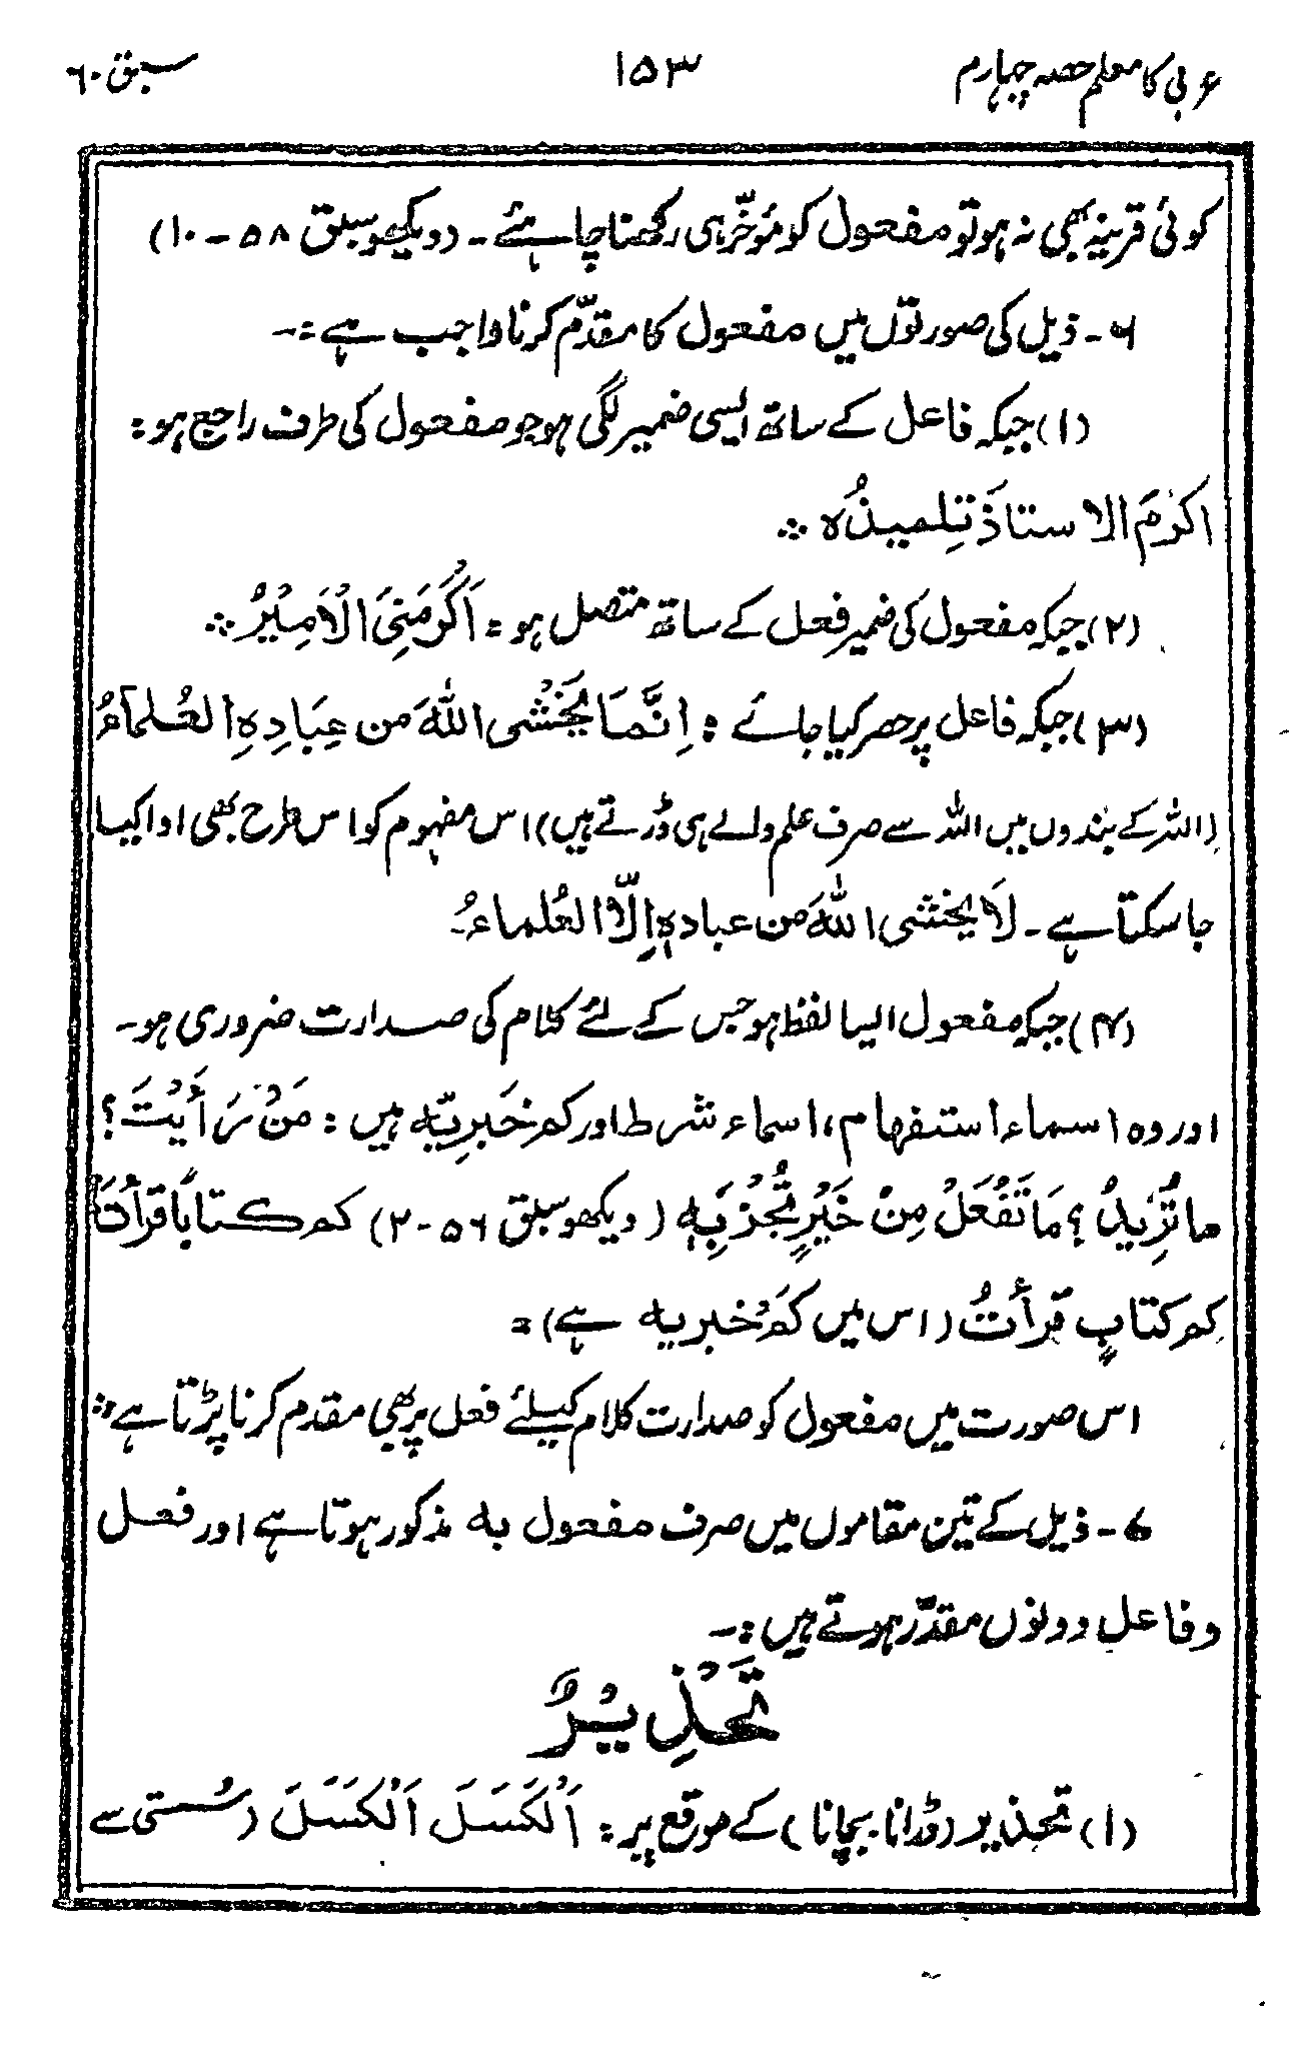 عربی کا معلم حصہ چہارم ۱۵۳ سبق ۶۰
کوئی قرینہ بھی نہ ہو تو مفعول کو مؤخّر ہی رکھنا چاہئے۔ (دیکھو سبق ۵۸-۱۰)
۶۔ ذیل کی صورتوں میں مفعول کا مقدّم کرنا واجب ہے:۔
(۱) جبکہ فاعل کے ساتھ ایسی ضمیر لگی ہو جو مفعول کی طرف راجع ہو:
اکرَمَ الاستاذَ تِلمیذُہ ∴
(۲) جبکہ مفعول کی ضمیر فعل کے ساتھ متصل ہو: اَکْرَمَنِیَ الْاَمِیْرُ ∴
(۳) جبکہ فاعل پر حصر کیا جائے: اِنَّمَا یَخْشَی اللّٰہَ من عِبَادِہِ العُلمآءُ
(اللہ کے بندوں میں اللہ سے صرف علم والے ہی ڈرتے ہیں) اس مفہوم کو اس طرح بھی ادا کیا
جا سکتا ہے۔ لَا یخشی اللّٰہَ من عبادہٖ اِلّا العُلماءُ۔
(۴) جبکہ مفعول ایسا لفظ ہو جس کے لئے کلام کی صدارت ضروری ہو۔
اور وہ اسماء استفہام، اسماء شرط اور کم خَبرِیّہ ہیں: مَنْ رَأَیْتَ؟
ما تُرِیدُ؟ مَا تَفْعَلْ مِنْ خَیْرٍ تُجْزَ بِہٖ (دیکھو سبق ۵۶-۲) کم کتابًا قرأتَ
کم کتابٍ قرأتُ (اس میں کَمْ خبریہ ہے):
اس صورت میں مفعول کو صدارت کلام کیلئے فعل پر بھی مقدم کرنا پڑتا ہے ∴
۷۔ ذیل کے تین مقاموں میں صرف مفعول بہ مذکور ہوتا ہے اور فعل
وفاعل دونوں مقدّر ہوتے ہیں:۔
تَحْذِیْرٌ
(۱) تحذیر (ڈرانا۔ بچانا) کے موقع پر: اَلْکَسَلَ اَلْکَسَلَ (سُستی سے